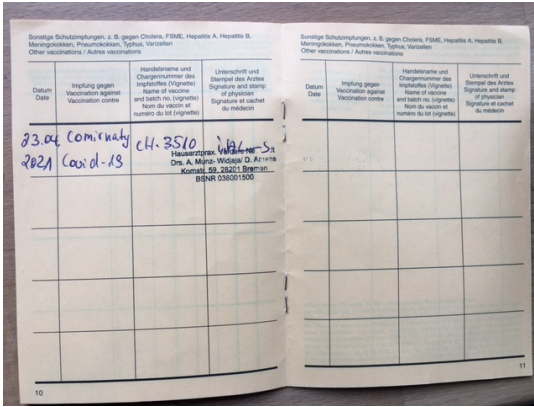 Sonstige Schutzimpfungen, z. B. gegen Cholera, FSME, Hepatitis A, Hepatitis B,
Meningokokken, Pneumokokken, Typhus, Varizellen
Other vaccinations / Autres vaccinations
Datum
Date
Impfung gegen
Vaccination against
Vaccination contre
Handelsname und
Chargennummer des
Impfstoffes (Vignette)
Name of vaccine
and batch no. (vignette)
Nom du vaccin et
numéro du lot (vignette)
Unterschrift und
Stempel des Arztes
Signature and stamp
of physician
Signature et cachet
du médecin
23.04 Comirnaty CH-3510
2021 Covid-19
Hausarztprax.
Drs. A. Munz- Widjaja/ D.
Kornstr. 59, 28201 Bremen
BSNR 036001500
10
Sonstige Schutzimpfungen, z. B. gegen Cholera, FSME, Hepatitis A, Hepatitis B,
Meningokokken, Pneumokokken, Typhus, Varizellen
Other vaccinations / Autres vaccinations
Datum
Date
Impfung gegen
Vaccination against
Vaccination contre
Handelsname und
Chargennummer des
Impfstoffes (Vignette)
Name of vaccine
and batch no. (vignette)
Nom du vaccin et
numéro du lot (vignette)
Unterschrift und
Stempel des Arztes
Signature and stamp
of physician
Signature et cachet
du médecin
11